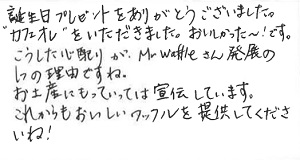 誕生日プレゼントをありがとうございました。
"カフェオレ"をいただきました。おいしかった〜!です。
こうした心配りが、Mr Waffleさん発展の
1つの理由ですね。
お土産にもっていっては宣伝しています。
これからもおいしいワッフルを提供してくださ
いね!